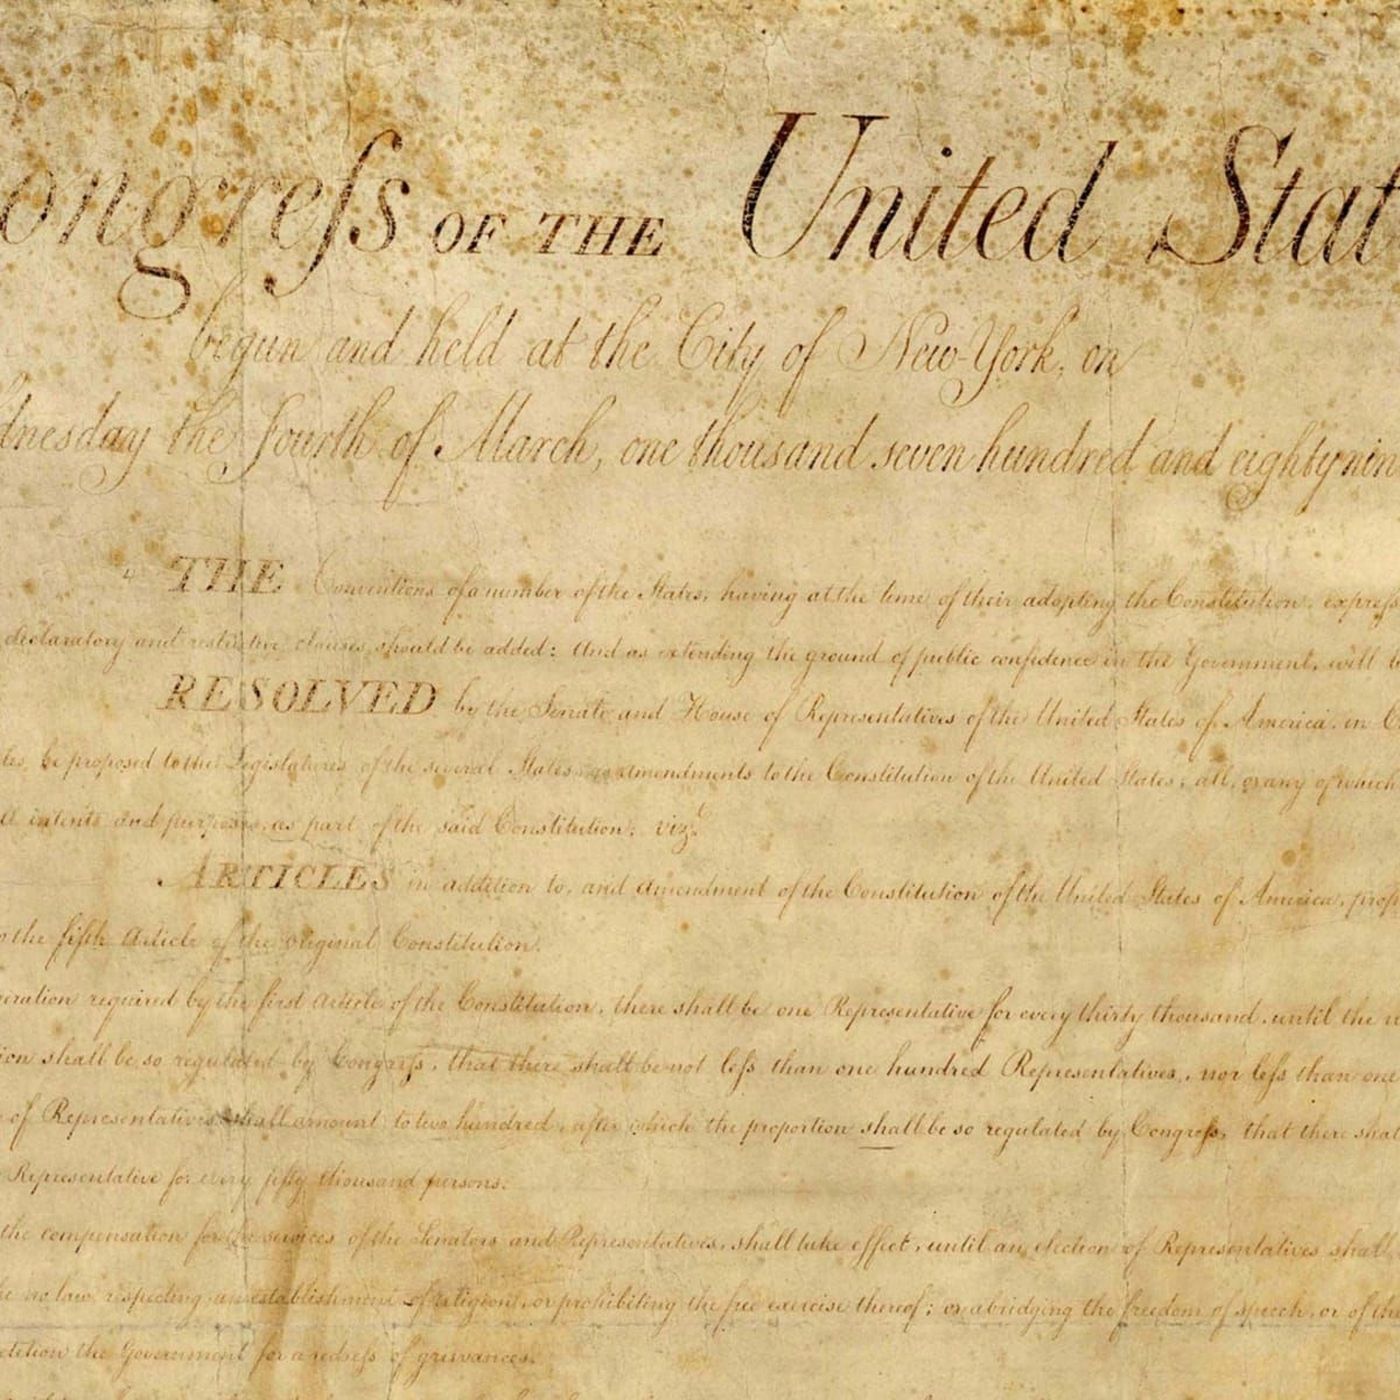 ongreſs OF THE United Stat
begun and held at the City of New-York, on
dnesday the Fourth of March, one thousand seven hundred and eighty nin
THE Conventions of a number of the States, having at the time of their adopting the Constitution, expreſs
declaratory and restrictive clauses should be added: And as extending the ground of public confidence in the Government, will b
RESOLVED by the Senate and House of Representatives of the United States of America, in C
les, be proposed to the Legislatures of the several States, as amendments to the Constitution of the United States, all, or any of which
intents and purposes, as part of the said Constitution; viz.t
ARTICLES in addition to, and amendment of the Constitution of the United States of America, prop
o the fifth Article of the original Constitution.
eration required by the first Article of the Constitution, there shall be one Representative for every thirty thousand, until the
ion shall be so regulated by Congreſs, that there shall be not leſs than one hundred Representatives, nor leſs than one
of Representatives shall amount to two hundred, after which the proportion shall be so regulated by Congreſs, that there shal
Representative for every fifty thousand persons.
the compensation for the services of the Senators and Representatives, shall take effect, until an election of Representatives shall
no law respecting an establishment of religion, or prohibiting the free exercise thereof; or abridging the freedom of speech, or of the
etition the Government for a redreſs of grievances.